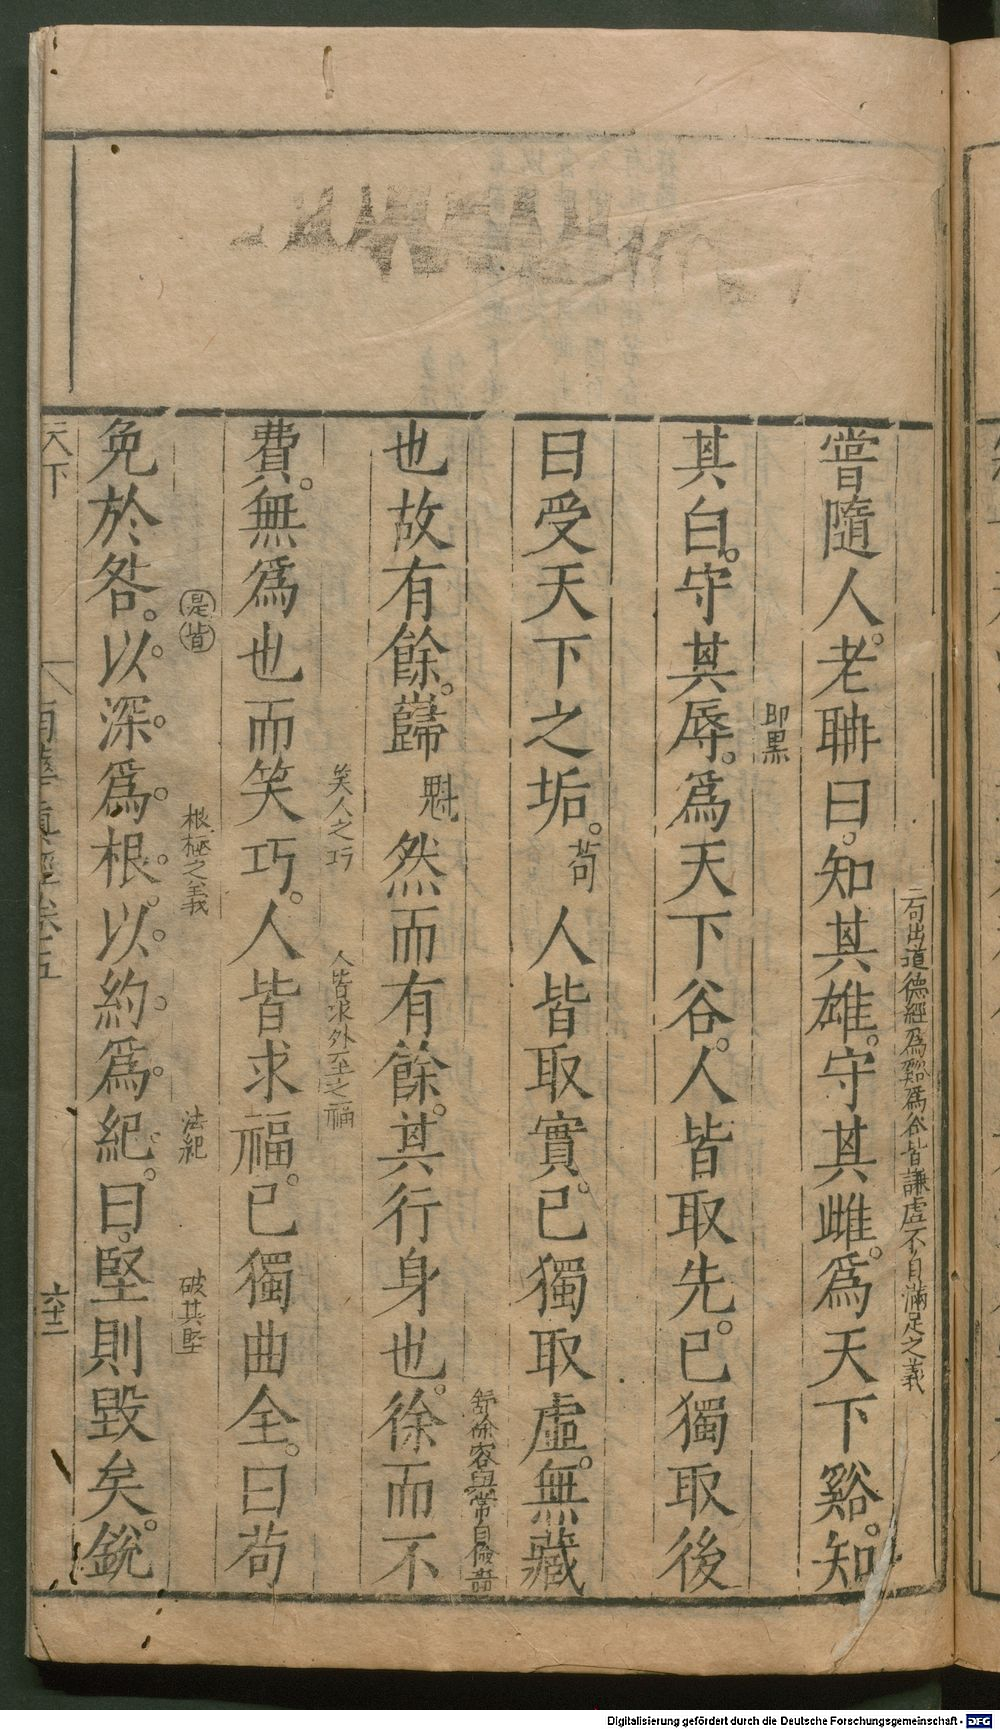 二句出道德經爲谿爲谷皆謙虛不自滿足之義
嘗隨人。老聃曰。知其雄。守其雌。爲天下谿。知
即黑
其白。守其辱。爲天下谷。人皆取先。已獨取後
曰受天下之垢。苟人皆取實。已獨取虛。無藏
舒徐容與常自儉嗇
也故有餘。巋魁然而有餘。其行身也。徐而不
笑人之巧 人皆求外至之福
費。無爲也而笑巧。人皆求福。已獨曲全。曰苟
是皆 根極之義 法紀 破其堅
免於咎。以深爲根。以約爲紀。曰。堅則毀矣。銳
天下 南華真經卷五 六十二
Digitalisierung gefördert durch die Deutsche Forschungsgemeinschaft - DFG